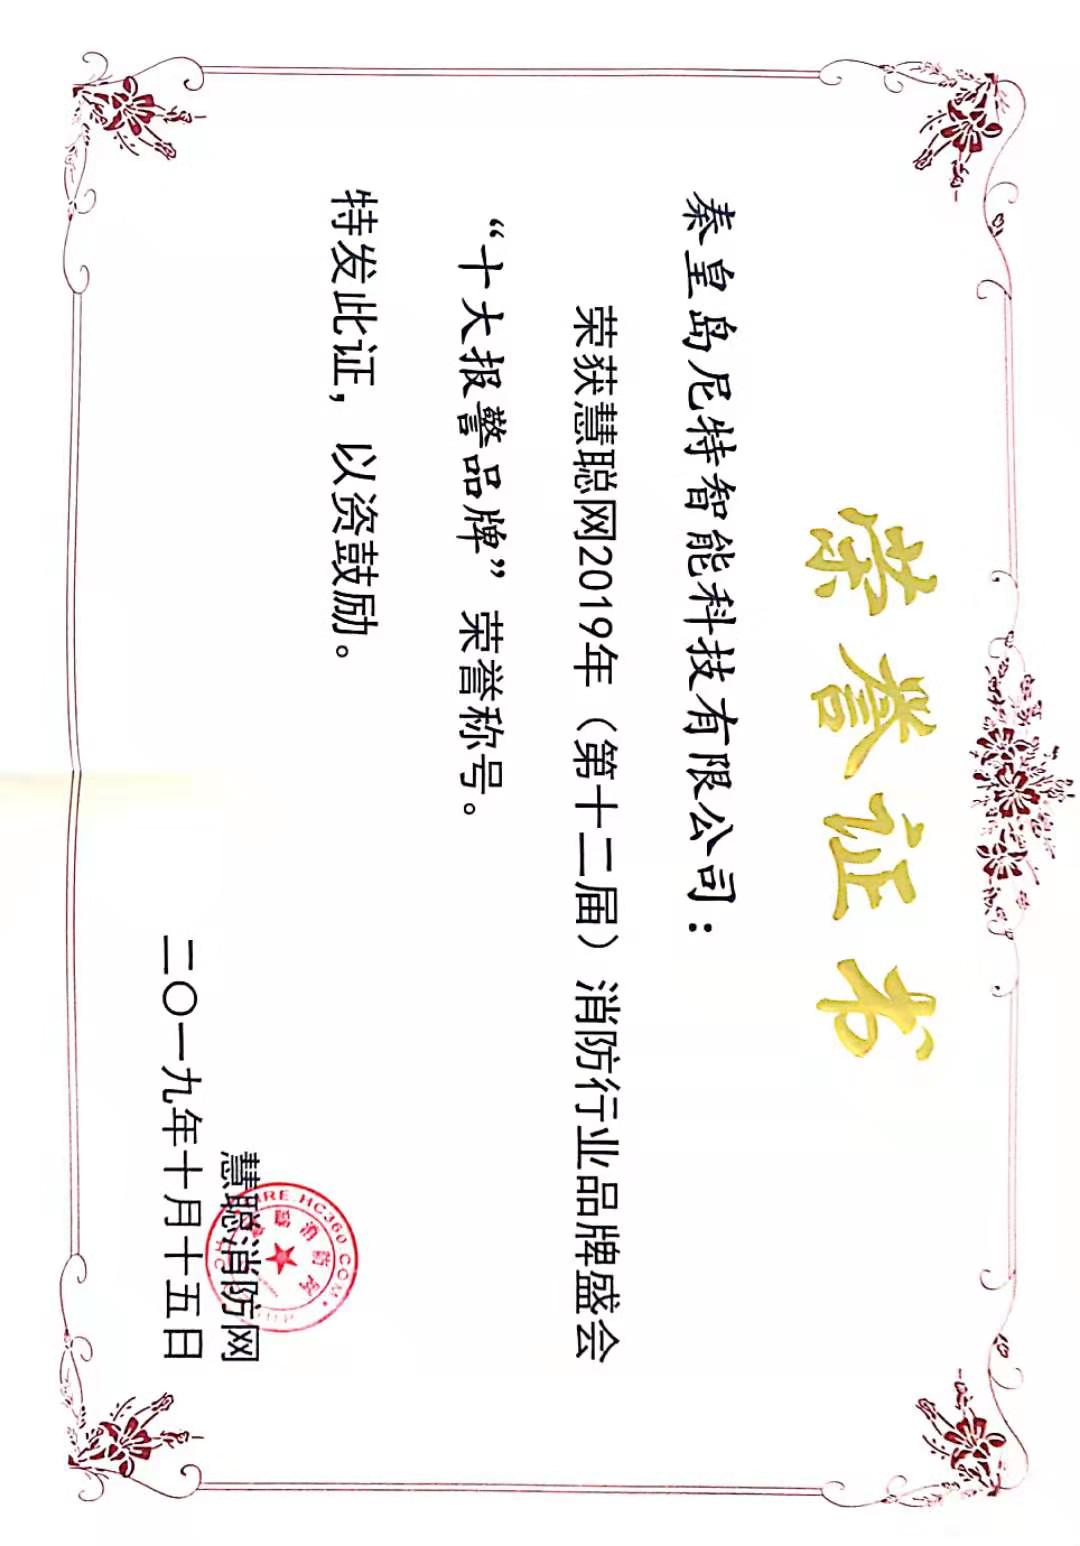 荣誉证书
秦皇岛尼特智能科技有限公司：
荣获慧聪网2019年（第十二届）消防行业品牌盛会
“十大报警品牌”荣誉称号。
特发此证，以资鼓励。
慧聪消防网
二〇一九年十月十五日
FIRE.HC360.COM